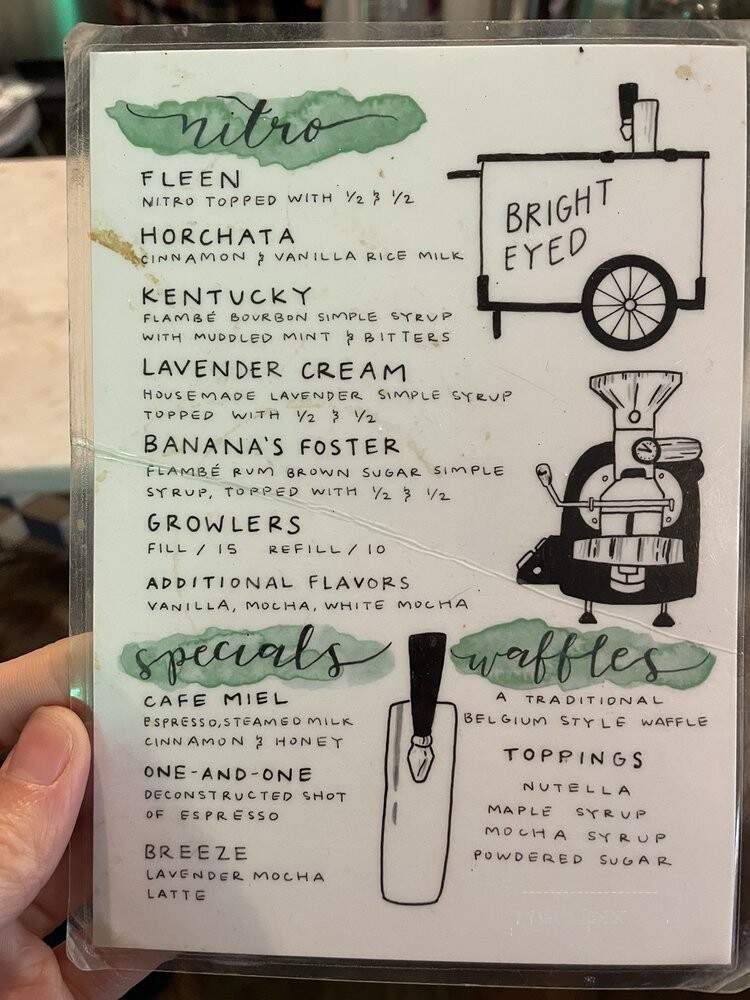 nitro
FLEEN
NITRO TOPPED WITH ½ & ½
HORCHATA
CINNAMON & VANILLA RICE MILK
KENTUCKY
FLAMBÉ BOURBON SIMPLE SYRUP
WITH MUDDLED MINT & BITTERS
LAVENDER CREAM
HOUSEMADE LAVENDER SIMPLE SYRUP
TOPPED WITH ½ & ½
BANANA'S FOSTER
FLAMBÉ RUM BROWN SUGAR SIMPLE
SYRUP, TOPPED WITH ½ & ½
GROWLERS
FILL / 15 REFILL / 10
ADDITIONAL FLAVORS
VANILLA, MOCHA, WHITE MOCHA
BRIGHT
EYED
specials
CAFE MIEL
ESPRESSO, STEAMED MILK
CINNAMON & HONEY
ONE-AND-ONE
DECONSTRUCTED SHOT
OF ESPRESSO
BREEZE
LAVENDER MOCHA
LATTE
waffles
A TRADITIONAL
BELGIUM STYLE WAFFLE
TOPPINGS
NUTELLA
MAPLE SYRUP
MOCHA SYRUP
POWDERED SUGAR